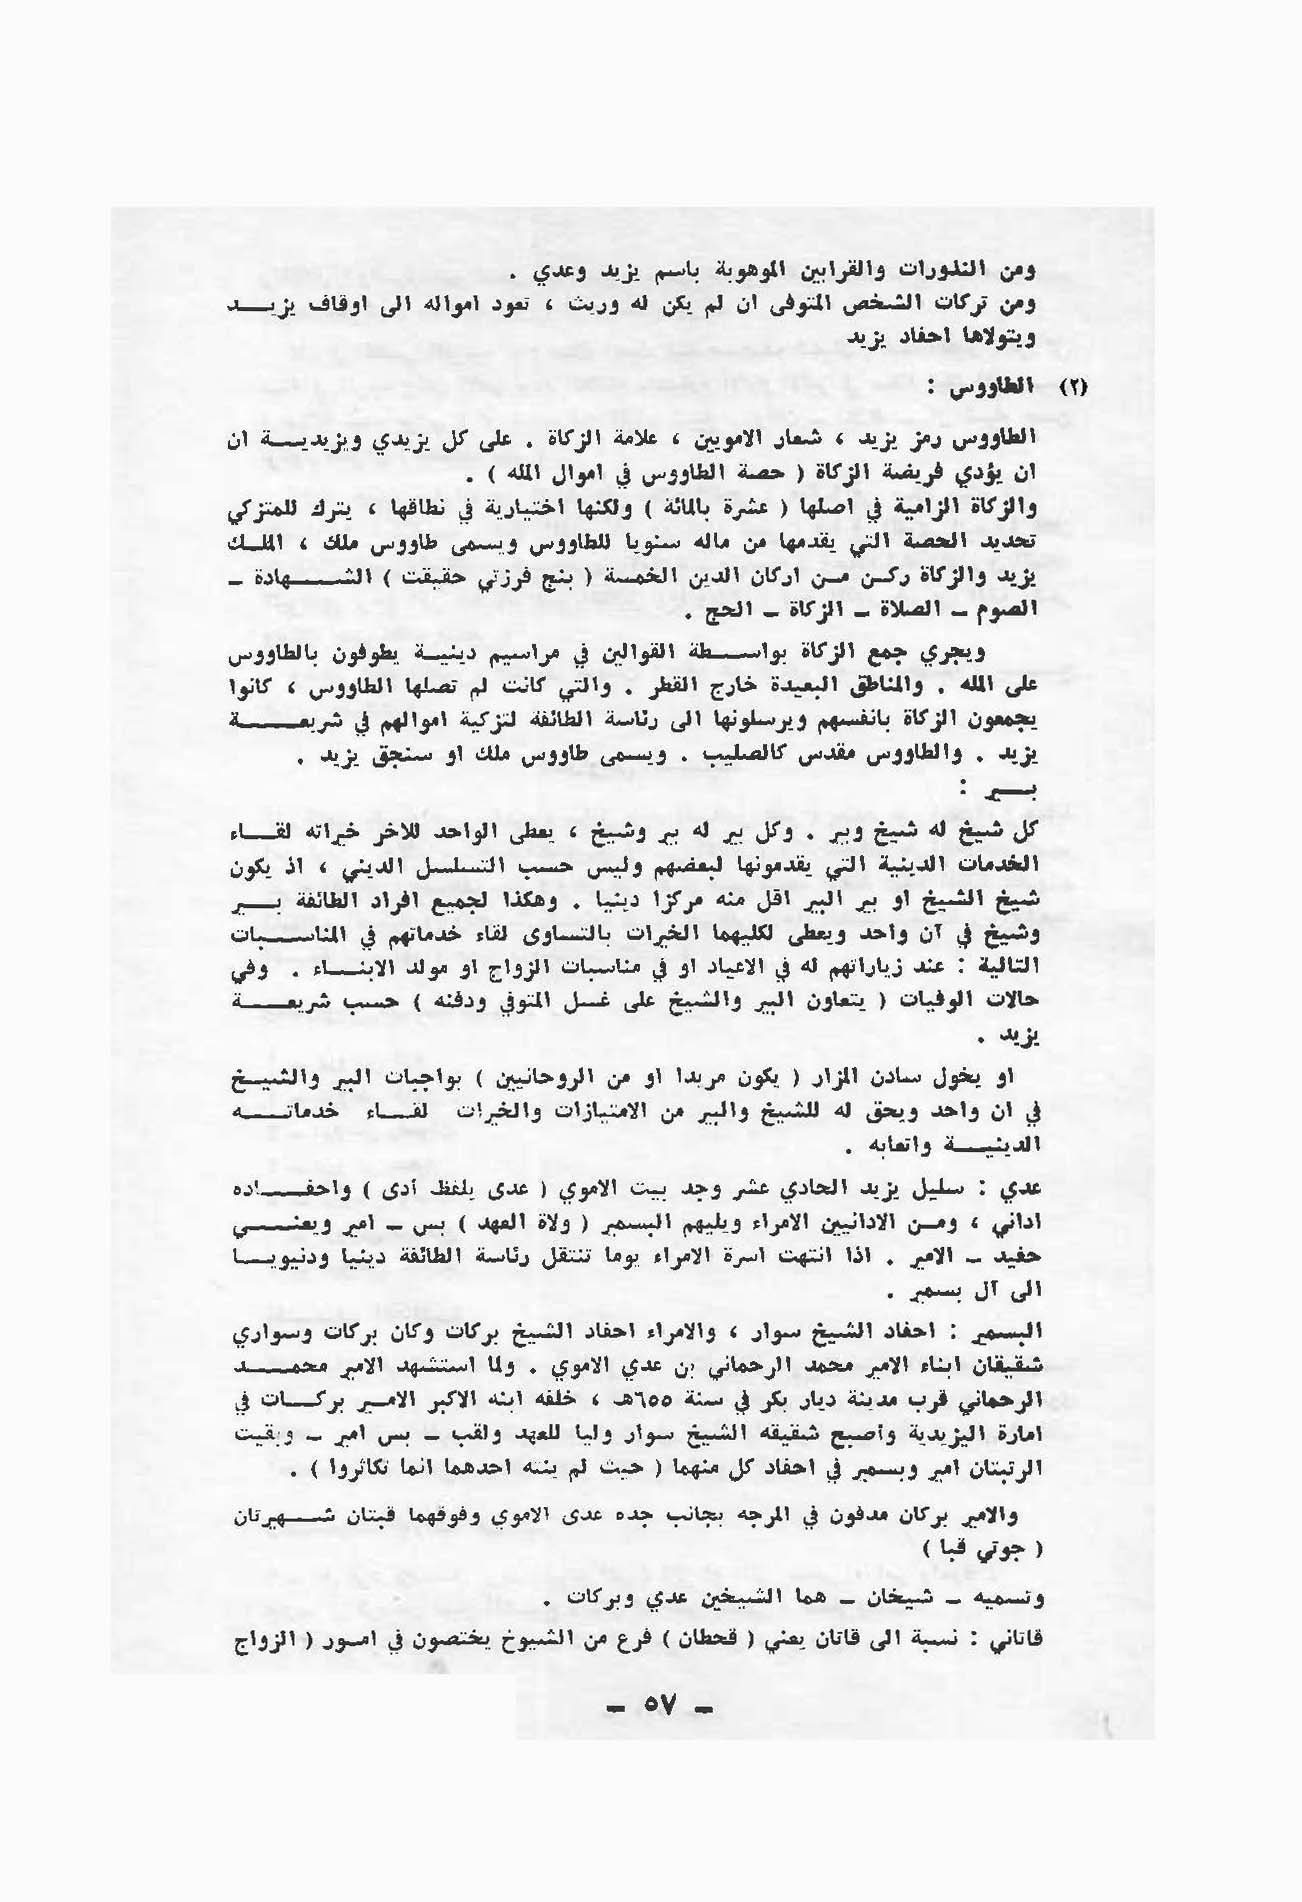 ومن النذورات والقرابين الموهوبة باسم يزيد وعدي .
ومن تركات الشخص المتوفى ان لم يكن له وريث ، تعود امواله الى اوقاف يزيد
ويتولاها احفاد يزيد
(٢) الطاووس :
الطاووس رمز يزيد ، شعار الامويين ، علامة الزكاة . على كل يزيدي ويزيدية ان
ان يؤدي فريضة الزكاة ( حصة الطاووس في اموال المله ) .
والزكاة الزامية في اصلها ( عشرة بالمائة ) ولكنها اختيارية في نطاقها ، يترك للمتزكي
تحديد الحصة التي يقدمها من ماله سنويا للطاووس ويسمى طاووس ملك ، الملك
يزيد والزكاة ركن من اركان الدين الخمسة ( بنج فرزتي حقيقت ) الشهادة –
الصوم – الصلاة – الزكاة – الحج .
ويجري جمع الزكاة بواسطة القوالين في مراسيم دينية يطوفون بالطاووس
على المله . والمناطق البعيدة خارج القطر . والتي كانت لم تصلها الطاووس ، كانوا
يجمعون الزكاة بانفسهم ويرسلونها الى رئاسة الطائفة لتزكية اموالهم في شريعة
يزيد . والطاووس مقدس كالصليب . ويسمى طاووس ملك او سنجق يزيد .
بير :
كل شيخ له شيخ وبير . وكل بير له بير وشيخ ، يعطى الواحد للاخر خيراته لقاء
الخدمات الدينية التي يقدمونها لبعضهم وليس حسب التسلسل الديني ، اذ يكون
شيخ الشيخ او بير البير اقل منه مركزا دينيا . وهكذا لجميع افراد الطائفة بير
وشيخ في آن واحد ويعطى لكليهما الخيرات بالتساوى لقاء خدماتهم في المناسبات
التالية : عند زياراتهم له في الاعياد او في مناسبات الزواج او مولد الابناء . وفي
حالات الوفيات ( يتعاون البير والشيخ على غسل المتوفي ودفنه ) حسب شريعة
يزيد .
او يخول سادن المزار ( يكون مريدا او من الروحانيين ) بواجبات البير والشيخ
في ان واحد ويحق له للشيخ والبير من الامتيازات والخيرات لقاء خدماته
الدينية واتعابه .
عدي : سليل يزيد الحادي عشر وجد بيت الاموي ( عدى يلفظ أدى ) واحفاده
اداني ، ومن الادانيين الامراء ويليهم البسمير ( ولاة العهد ) بس – امير ويعني
حفيد – الامير . اذا انتهت اسرة الامراء يوما تنتقل رئاسة الطائفة دينيا ودنيويا
الى آل بسمير .
البسمير : احفاد الشيخ سوار ، والامراء احفاد الشيخ بركات وكان بركات وسواري
شقيقان ابناء الامير محمد الرحماني بن عدي الاموي . ولما استشهد الامير محمد
الرحماني قرب مدينة ديار بكر في سنة ٦٥٥هـ ، خلفه ابنه الاكبر الامير بركات في
امارة اليزيدية وأصبح شقيقه الشيخ سوار وليا للعهد ولقب – بس امير – وبقيت
الرتبتان امير وبسمير في احفاد كل منهما ( حيث لم ينته احدهما انما تكاثروا ) .
والامير بركان مدفون في المرجه بجانب جده عدى الاموي وفوقهما قبتان شهيرتان
( جوتي قبا )
وتسميه – شيخان – هما الشيخين عدي وبركات .
قاتاني : نسبة الى قاتان يعني ( قحطان ) فرع من الشيوخ يختصون في امور ( الزواج
– ٥٧ –